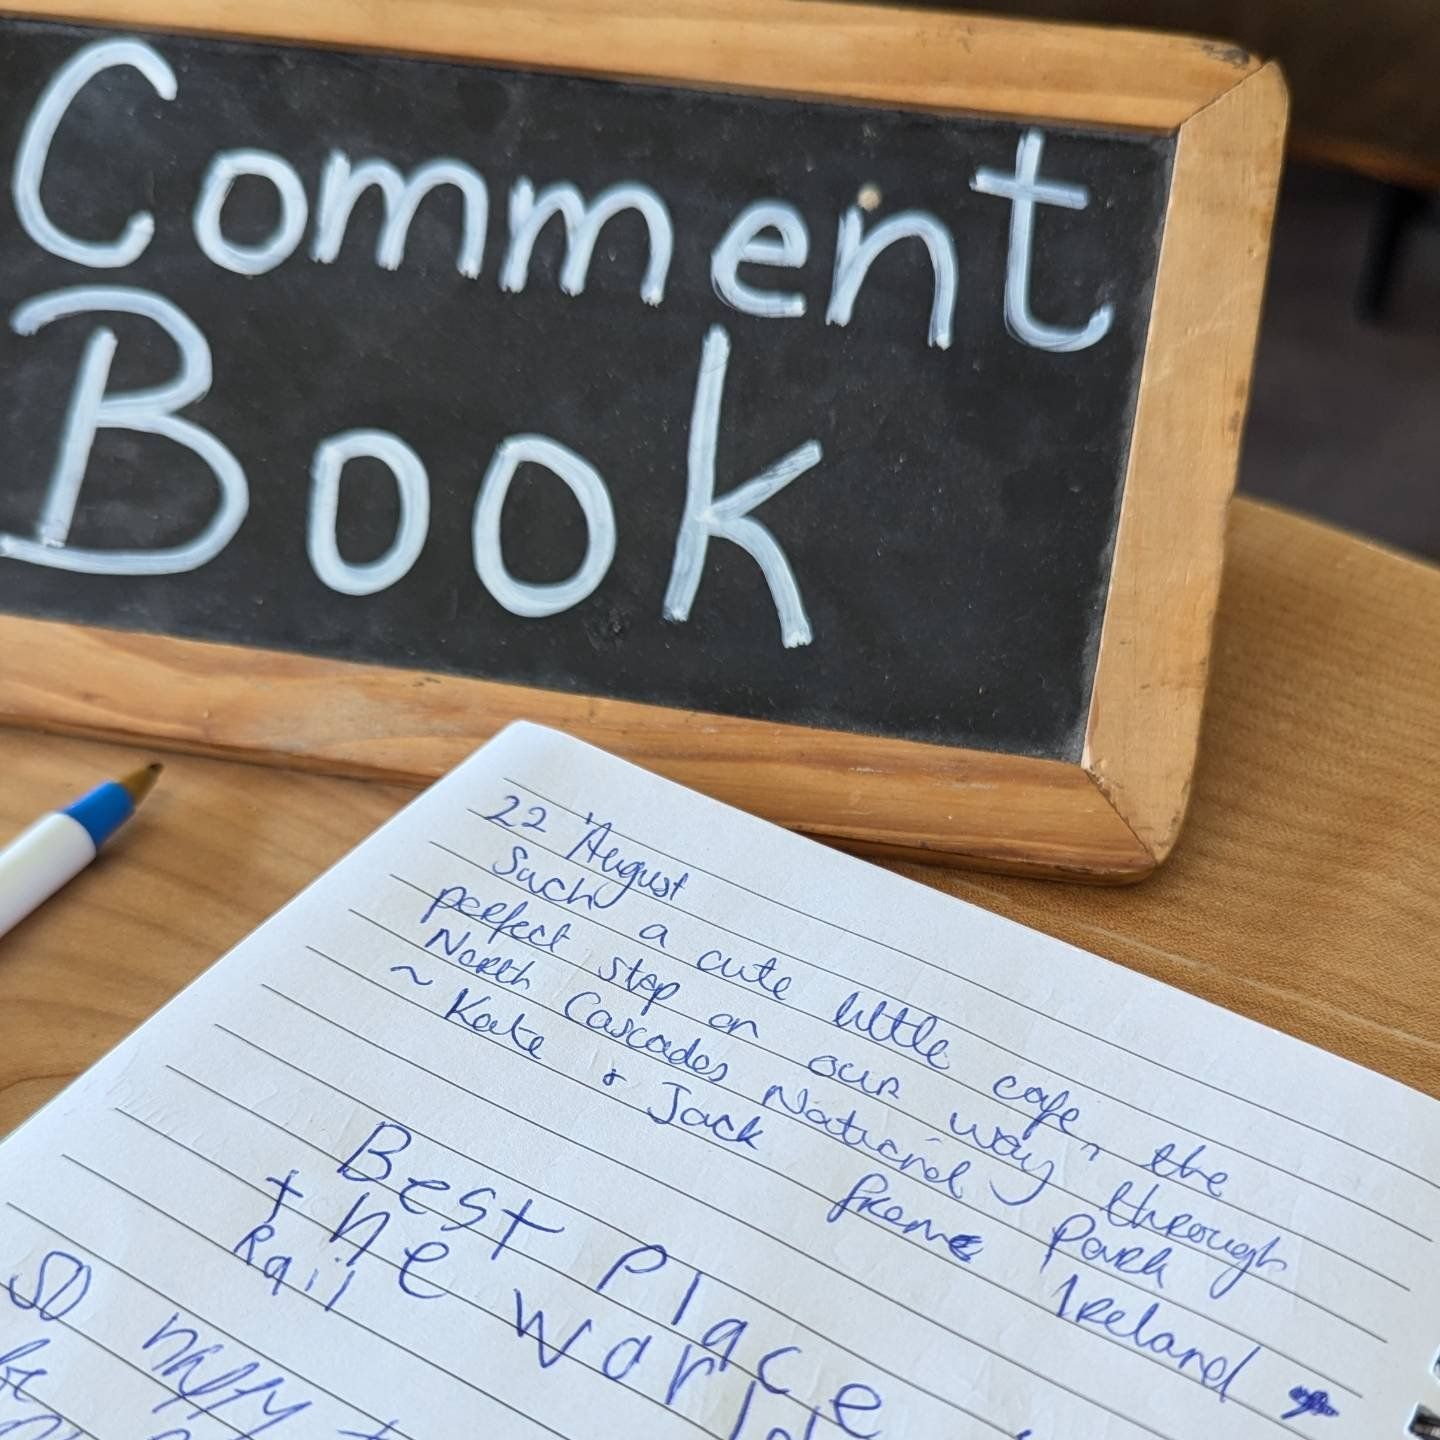 Comment
Book
22 August
Such a cute little cafe, the
perfect stop on our way through
North Cascades National Park
~ Kate & Jack from Ireland
Best place
the world
Rail
so happy